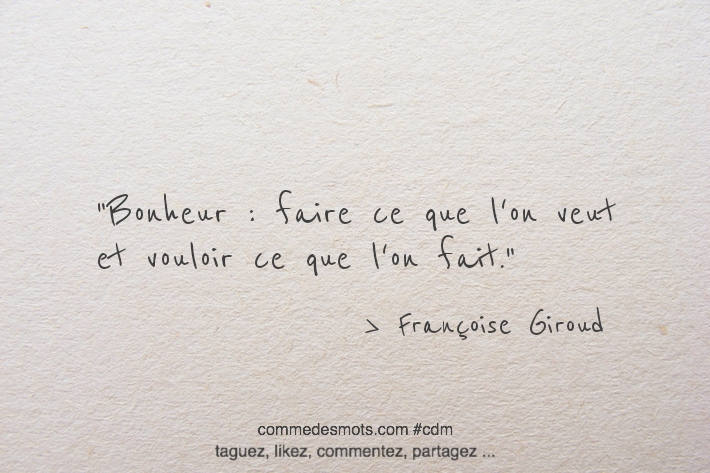 "Bonheur : faire ce que l'on veut
et vouloir ce que l'on fait."
> Françoise Giroud
commedesmots.com #cdm
taguez, likez, commentez, partagez ...